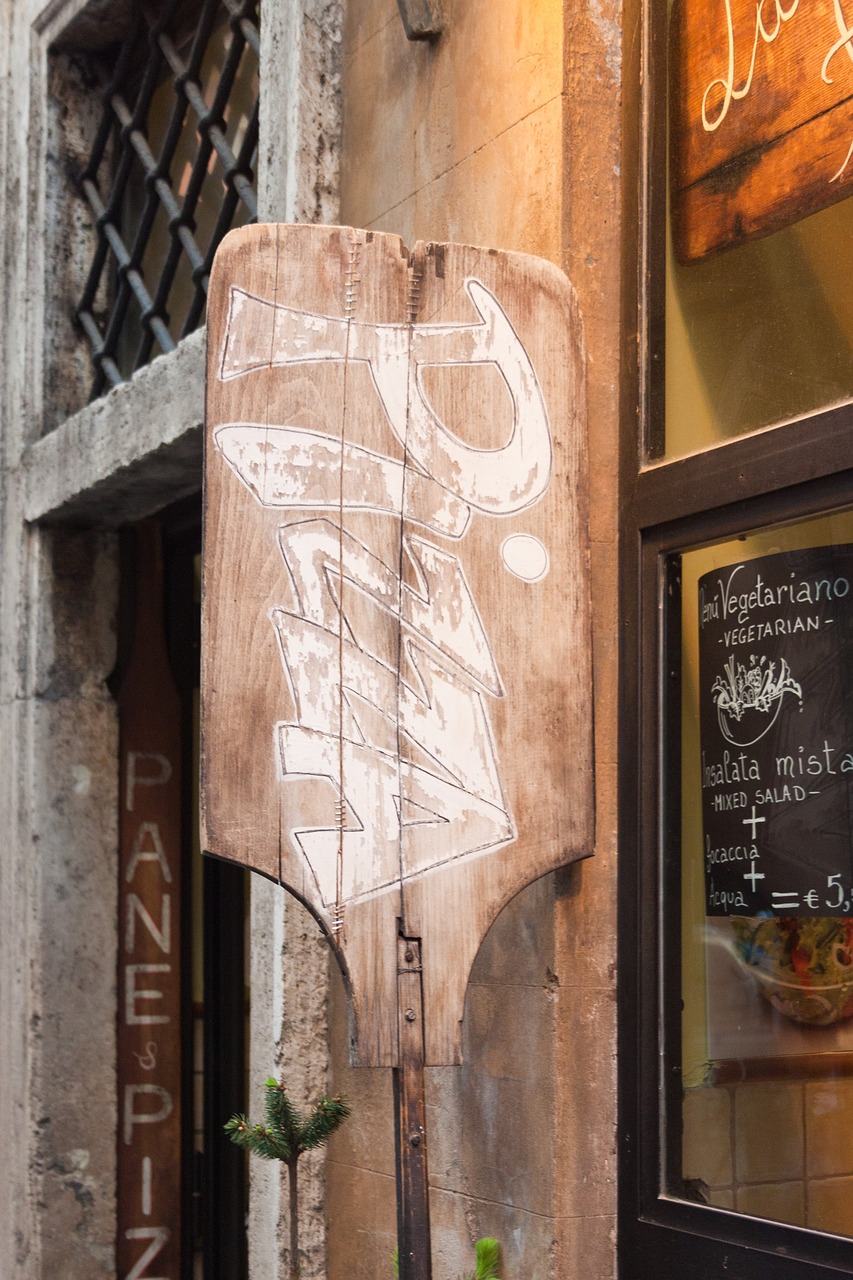 PiZZA
La
Menú Vegetariano
-VEGETARIAN-
Insalata mista
-MIXED SALAD-
+
focaccia
+
Acqua = € 5,
PANE & PIZ